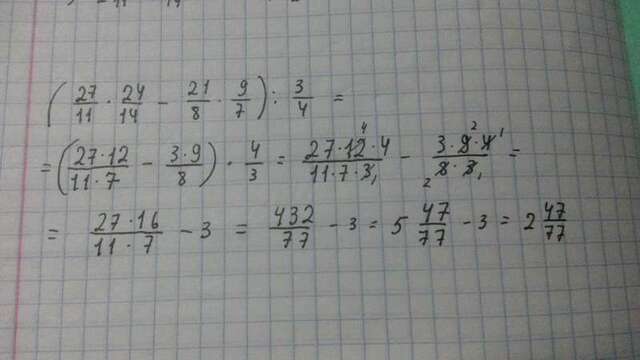 (27/11 · 24/14 − 21/8 · 9/7) : 3/4 =
= (27·12/11·7 − 3·9/8) · 4/3 = 27·12·4/11·7·3 − 3·9·4/8·3 =
= 27·16/11·7 − 3 = 432/77 − 3 = 5 47/77 − 3 = 2 47/77